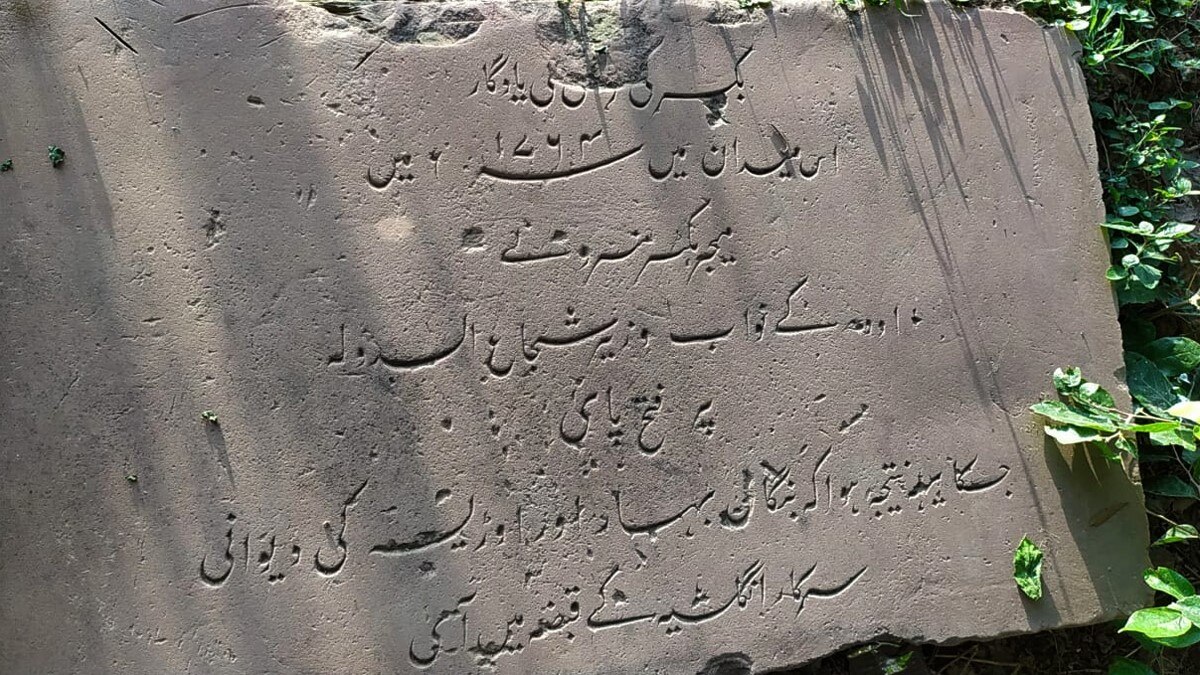 بکسر کی یادگار
اس میدان میں سنہ ۱۷۶۴ ء میں
میجر ہکٹر منرو نے
اودھ کے نواب وزیر شجاع الدولہ
پر فتح پائی
جسکا یہہ نتیجہ ہوا کہ بنگال بہار اور اوڑیسہ کی دیوانی
سرکار انگلشیہ کے قبضہ میں آئی